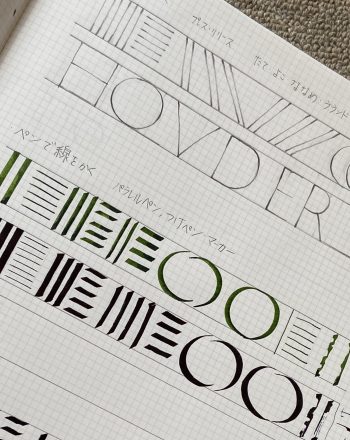 プレス・リリース
たて・よこ・ななめ・ラウンド
HOVDFR
ペンで線をかく
パラレルペン,つけペン マーカー